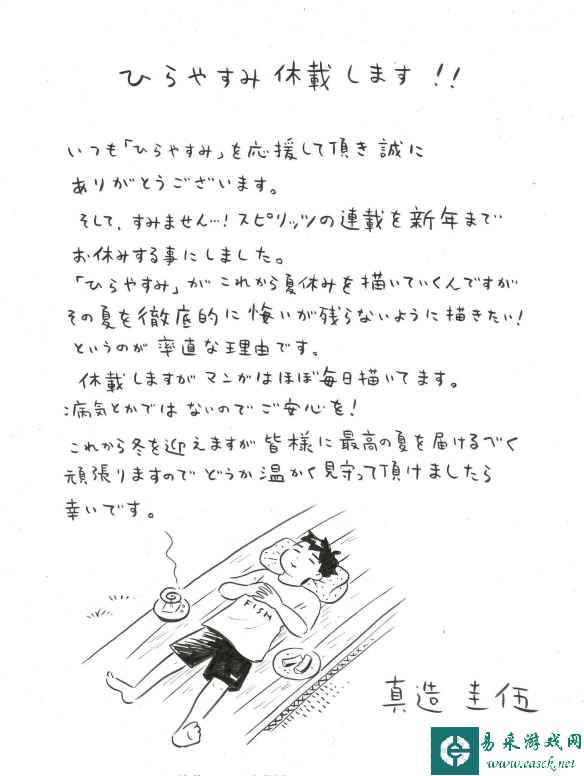 ひらやすみ 休載します!!
いつも「ひらやすみ」を応援して頂き誠に
ありがとうございます。
そして、すみません…!スピリッツの連載を新年まで
お休みする事にしました。
「ひらやすみ」がこれから夏休みを描いていくんですが
その夏を徹底的に悔いが残らないように描きたい!
というのが率直な理由です。
休載しますがマンガはほぼ毎日描いてます。
病気とかではないのでご安心を!
これから冬を迎えますが皆様に最高の夏を届けるべく
頑張りますのでどうか温かく見守って頂けましたら
幸いです。
FISH
真造圭伍
易采游戏网
www.easck.net